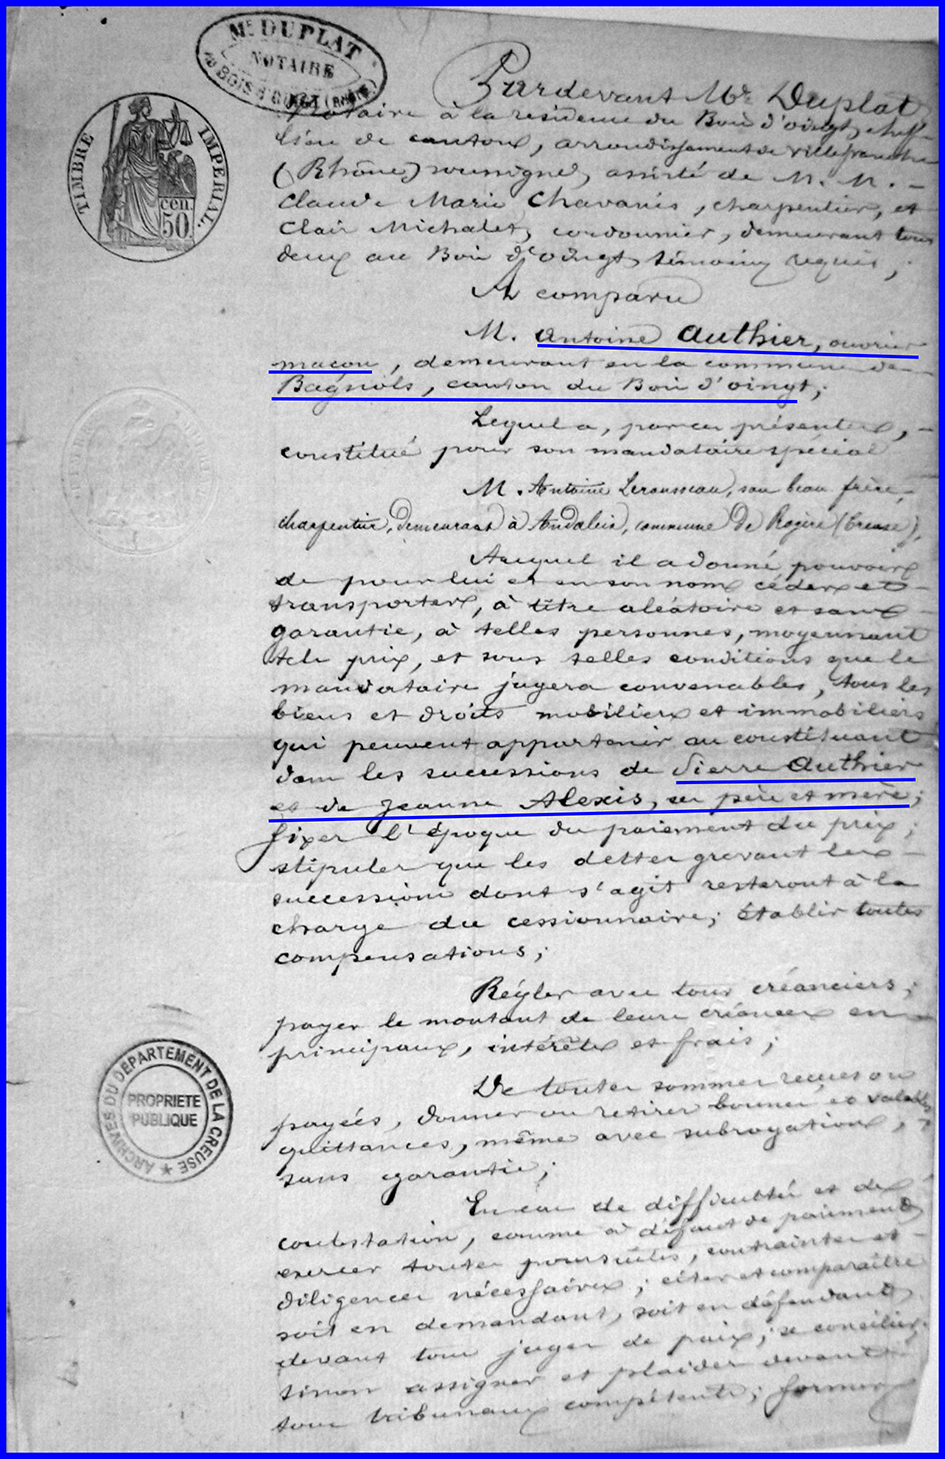 Me DUPLAT
NOTAIRE
au BOIS D'OINGT (RHÔNE)
TIMBRE IMPERIAL.
50 cen.
Pardevant Me Duplat,
Notaire à la résidence du Bois d'oingt, chef-
lieu de canton, arrondissement de Villefranche
(Rhône) soussigné, assisté de M. M. -
Claude Marie Chavanis, charpentier, et
Clair Michalet, cordonnier, demeurant tous
deux au Bois d'oingt, témoins requis;
A comparu
M. Antoine Authier, ouvrier
maçon, demeurant en la commune de
Bagnols, canton du Bois d'oingt;
Lequel a, par ces présentes, -
constitué pour son mandataire spécial
M. Antoine Lerousseau, son beau frère,
charpentier, demeurant à Andaleix, commune de (Creuse),
Auquel il a donné pouvoir
de pour lui et en son nom céder et -
transporter, à titre aléatoire et sans -
garantie, à telles personnes, moyennant
tel prix, et sous telles conditions que le
mandataire jugera convenables, tous les
biens et droits mobiliers et immobiliers
qui peuvent appartenir au constituant
dans les successions de Pierre Authier
et de Jeanne Alexis, ses père et mère;
fixer l'époque du paiement du prix;
stipuler que les dettes grevant les -
successions dont s'agit resteront à la
charge du cessionnaire; établir toutes
compensations;
Régler avec tous créanciers;
payer le montant de leurs créances en
principaux, intérêts et frais;
De toutes sommes reçues ou
payées, donner ou retirer bonnes et valables
quittances, même avec subrogation,
sans garantie;
En cas de difficultés et de
contestation, comme à défaut de paiement
exercer toutes poursuites, contraintes et -
diligences nécessaires; citer et comparaître
soit en demandant, soit en défendant
devant tous juges de paix; se concilier,
sinon assigner et plaider devant
tous tribunaux compétents; former
ARCHIVES DU DEPARTEMENT DE LA CREUSE
PROPRIETE
PUBLIQUE